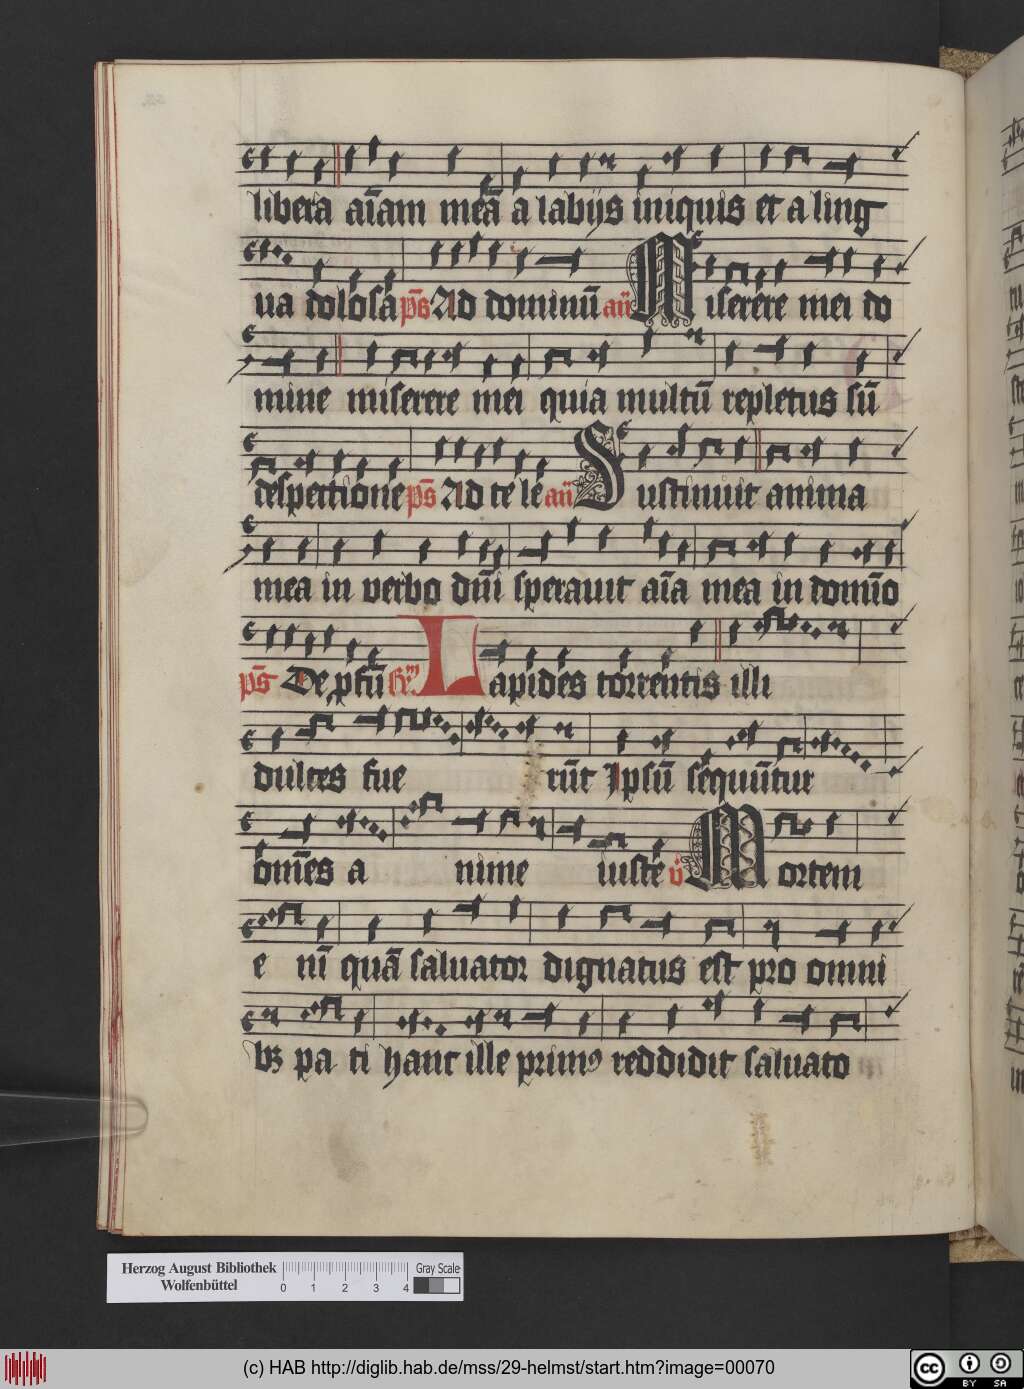 libera aīam meā a labijs iniquis et a ling
ua dolosa p̄s Ad dominū añ Miserere mei do
mine miserere mei quia multū repletus sū
despectione p̄s Ad te le añ Sustinuit anima
mea in verbo dn̄i sperauit aīa mea in domīo
p̄s De p̱fū Lapides torrentis illi
dulces fue rūt Ipsū sequūtur
om̄es a nime iuste v̊ Mortem
e nī quā saluator dignatus est pro omni
bꝫ pa ti hanc ille primꝰ reddidit saluato
Herzog August Bibliothek
Wolfenbüttel
0 1 2 3 4
Gray Scale
(c) HAB http://diglib.hab.de/mss/29-helmst/start.htm?image=00070
cc BY SA